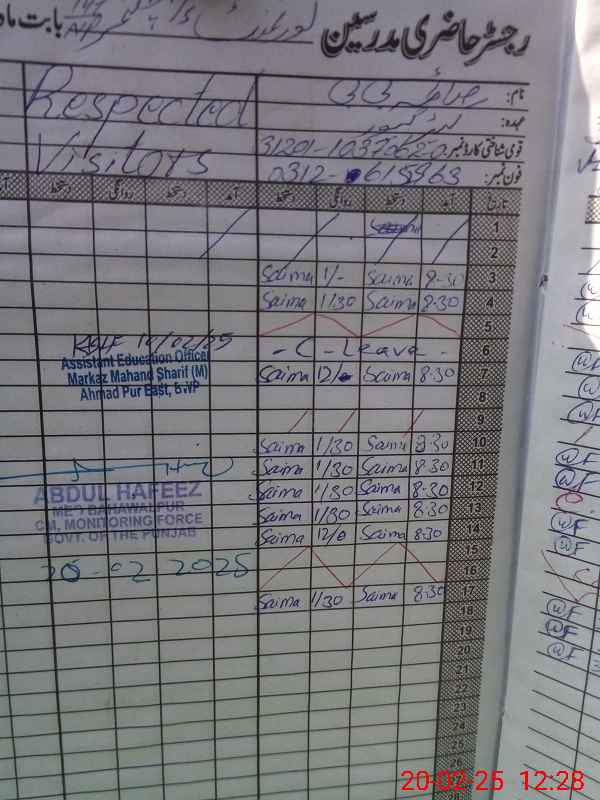 رجسٹر حاضری مدرسین
بابت ماہ
Respected
Visitors
نام: صائمہ
عہدہ:
قومی شناختی کارڈ نمبر
فون نمبر:
تاریخ آمد دستخط روانگی دستخط آمد دستخط روانگی دستخط
1
2
3 8-30 Saima 1/- Saima
4 8-30 Saima 1/30 Saima
5
6 - C - Leave -
7 8.30 Saima 12/ Saima
8
9
10 8.30 Saima 1/30 Saima
11 8.30 Saima 1/30 Saima
12 8.30 Saima 1/30 Saima
13 8.30 Saima 1/30 Saima
14 8.30 Saima 12/ Saima
15
16
17 8.30 Saima 1/30 Saima
18
19
20
21
22
23
24
25
26
27
28
Assistant Education Officer
Markaz Mahand Sharif (M)
Ahmad Pur East, BWP
ABDUL HAFEEZ
BAHAWALPUR
CM, MONITORING FORCE
GOVT. OF THE PUNJAB
20-02 2025
20-02-25 12:28